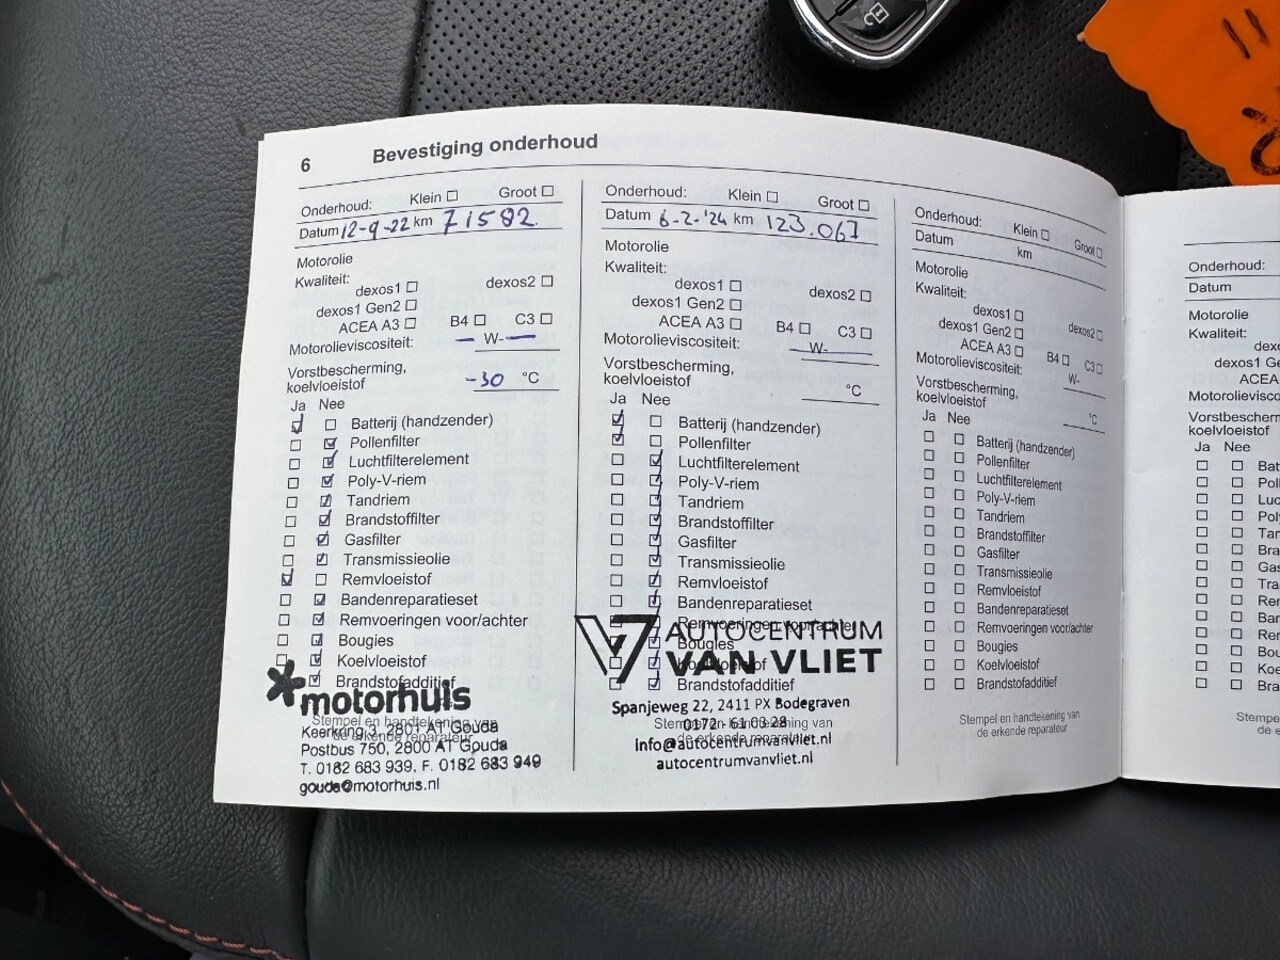 6 Bevestiging onderhoud
Onderhoud: Klein Groot
Datum 12-9-22 km 71582
Motorolie
Kwaliteit:
dexos1 dexos2
dexos1 Gen2
ACEA A3 B4 C3
Motorolieviscositeit: — W- —
Vorstbescherming,
koelvloeistof -30 °C
Ja Nee
Batterij (handzender)
Pollenfilter
Luchtfilterelement
Poly-V-riem
Tandriem
Brandstoffilter
Gasfilter
Transmissieolie
Remvloeistof
Bandenreparatieset
Remvoeringen voor/achter
Bougies
Koelvloeistof
Brandstofadditief
motorhuis
Stempel en handtekening van
de erkende reparateur
Keerkring 3, 2801 AT Gouda
Postbus 750, 2800 AT Gouda
T. 0182 683 939, F. 0182 683 949
gouda@motorhuis.nl
Onderhoud: Klein Groot
Datum 6-2-'24 km 123.061
Motorolie
Kwaliteit:
dexos1 dexos2
dexos1 Gen2
ACEA A3 B4 C3
Motorolieviscositeit: W-
Vorstbescherming,
koelvloeistof °C
Ja Nee
Batterij (handzender)
Pollenfilter
Luchtfilterelement
Poly-V-riem
Tandriem
Brandstoffilter
Gasfilter
Transmissieolie
Remvloeistof
Bandenreparatieset
Remvoeringen voor/achter
Bougies
Koelvloeistof
Brandstofadditief
AUTOCENTRUM
VAN VLIET
Spanjeweg 22, 2411 PX Bodegraven
Stempel en handtekening van
de erkende reparateur
0172 - 61 03 28
Info@autocentrumvanvliet.nl
autocentrumvanvliet.nl
Onderhoud: Klein Groot
Datum km
Motorolie
Kwaliteit:
dexos1 dexos2
dexos1 Gen2
ACEA A3 B4 C3
Motorolieviscositeit: W-
Vorstbescherming,
koelvloeistof °C
Ja Nee
Batterij (handzender)
Pollenfilter
Luchtfilterelement
Poly-V-riem
Tandriem
Brandstoffilter
Gasfilter
Transmissieolie
Remvloeistof
Bandenreparatieset
Remvoeringen voor/achter
Bougies
Koelvloeistof
Brandstofadditief
Stempel en handtekening van
de erkende reparateur
Onderhoud:
Datum
Motorolie
Kwaliteit:
ACEA
koelvloeistof
Ja Nee